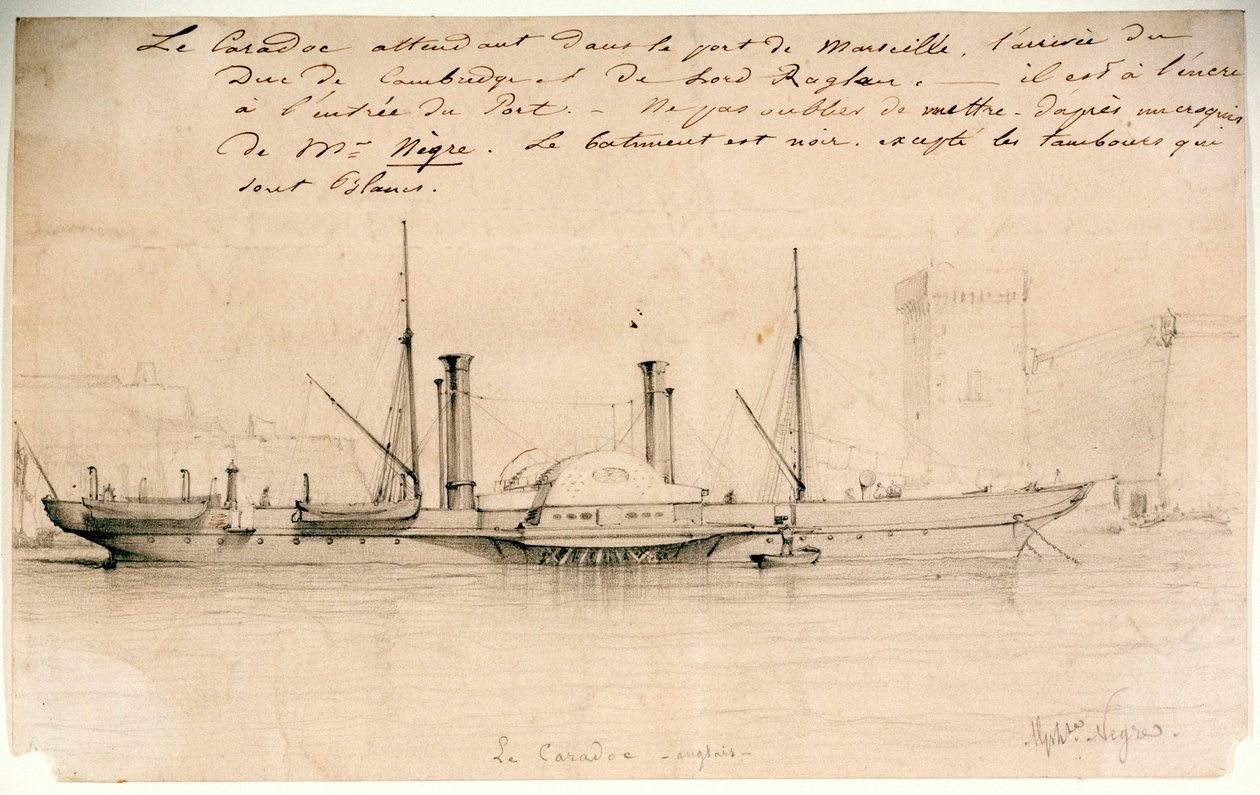 Le Caradoc attendant dans le port de Marseille, l'arrivée du
Duc de Cambredge et De Lord Raglan. — il est à l'encre
à l'entrée du Port. — Ne pas oublier de mettre - d'après un croquis
de Mr Nègre. Le batiment est noir. excepté les tambours qui
sont Blancs.
Le Caradoc - anglais -
Alphse Negre.